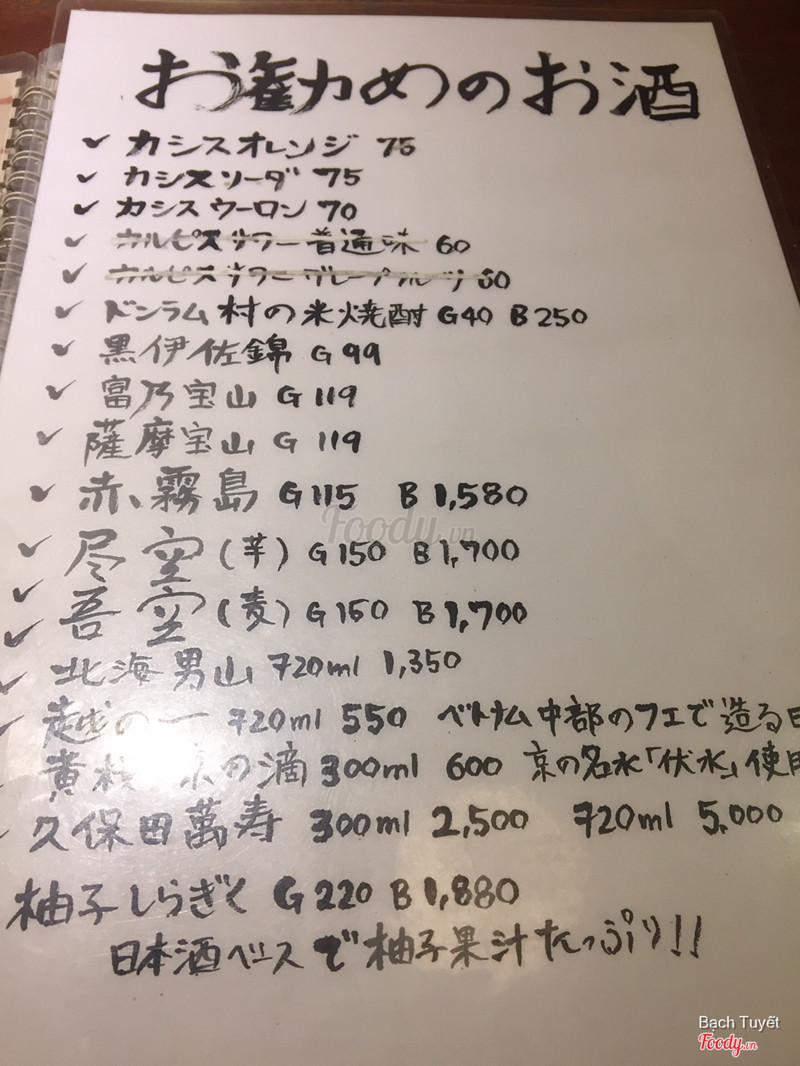 お勧めのお酒
✓ カシスオレンジ 75
✓ カシスソーダ 75
✓ カシスウーロン 70
✓ カルピスサワー普通味 60
✓ カルピスサワーグレープフルーツ 60
✓ ドンラム村の米焼酎 G40 B250
✓ 黒伊佐錦 G 99
✓ 富乃宝山 G 119
✓ 薩摩宝山 G 119
✓ 赤霧島 G115 B 1,580
✓ 尽空(芋) G150 B1,700
✓ 吾空(麦) G150 B1,700
✓ 北海男山 720ml 1,350
✓ 越の一 720ml 550 ベトナム中部のフエで造る日
黄桜 京の滴 300ml 600 京の名水「伏水」使用
久保田萬寿 300ml 2,500 720ml 5,000
柚子しらぎく G220 B1,880
日本酒ベースで柚子果汁たっぷり!!
Foody.vn
Bạch Tuyết
Foody.vn